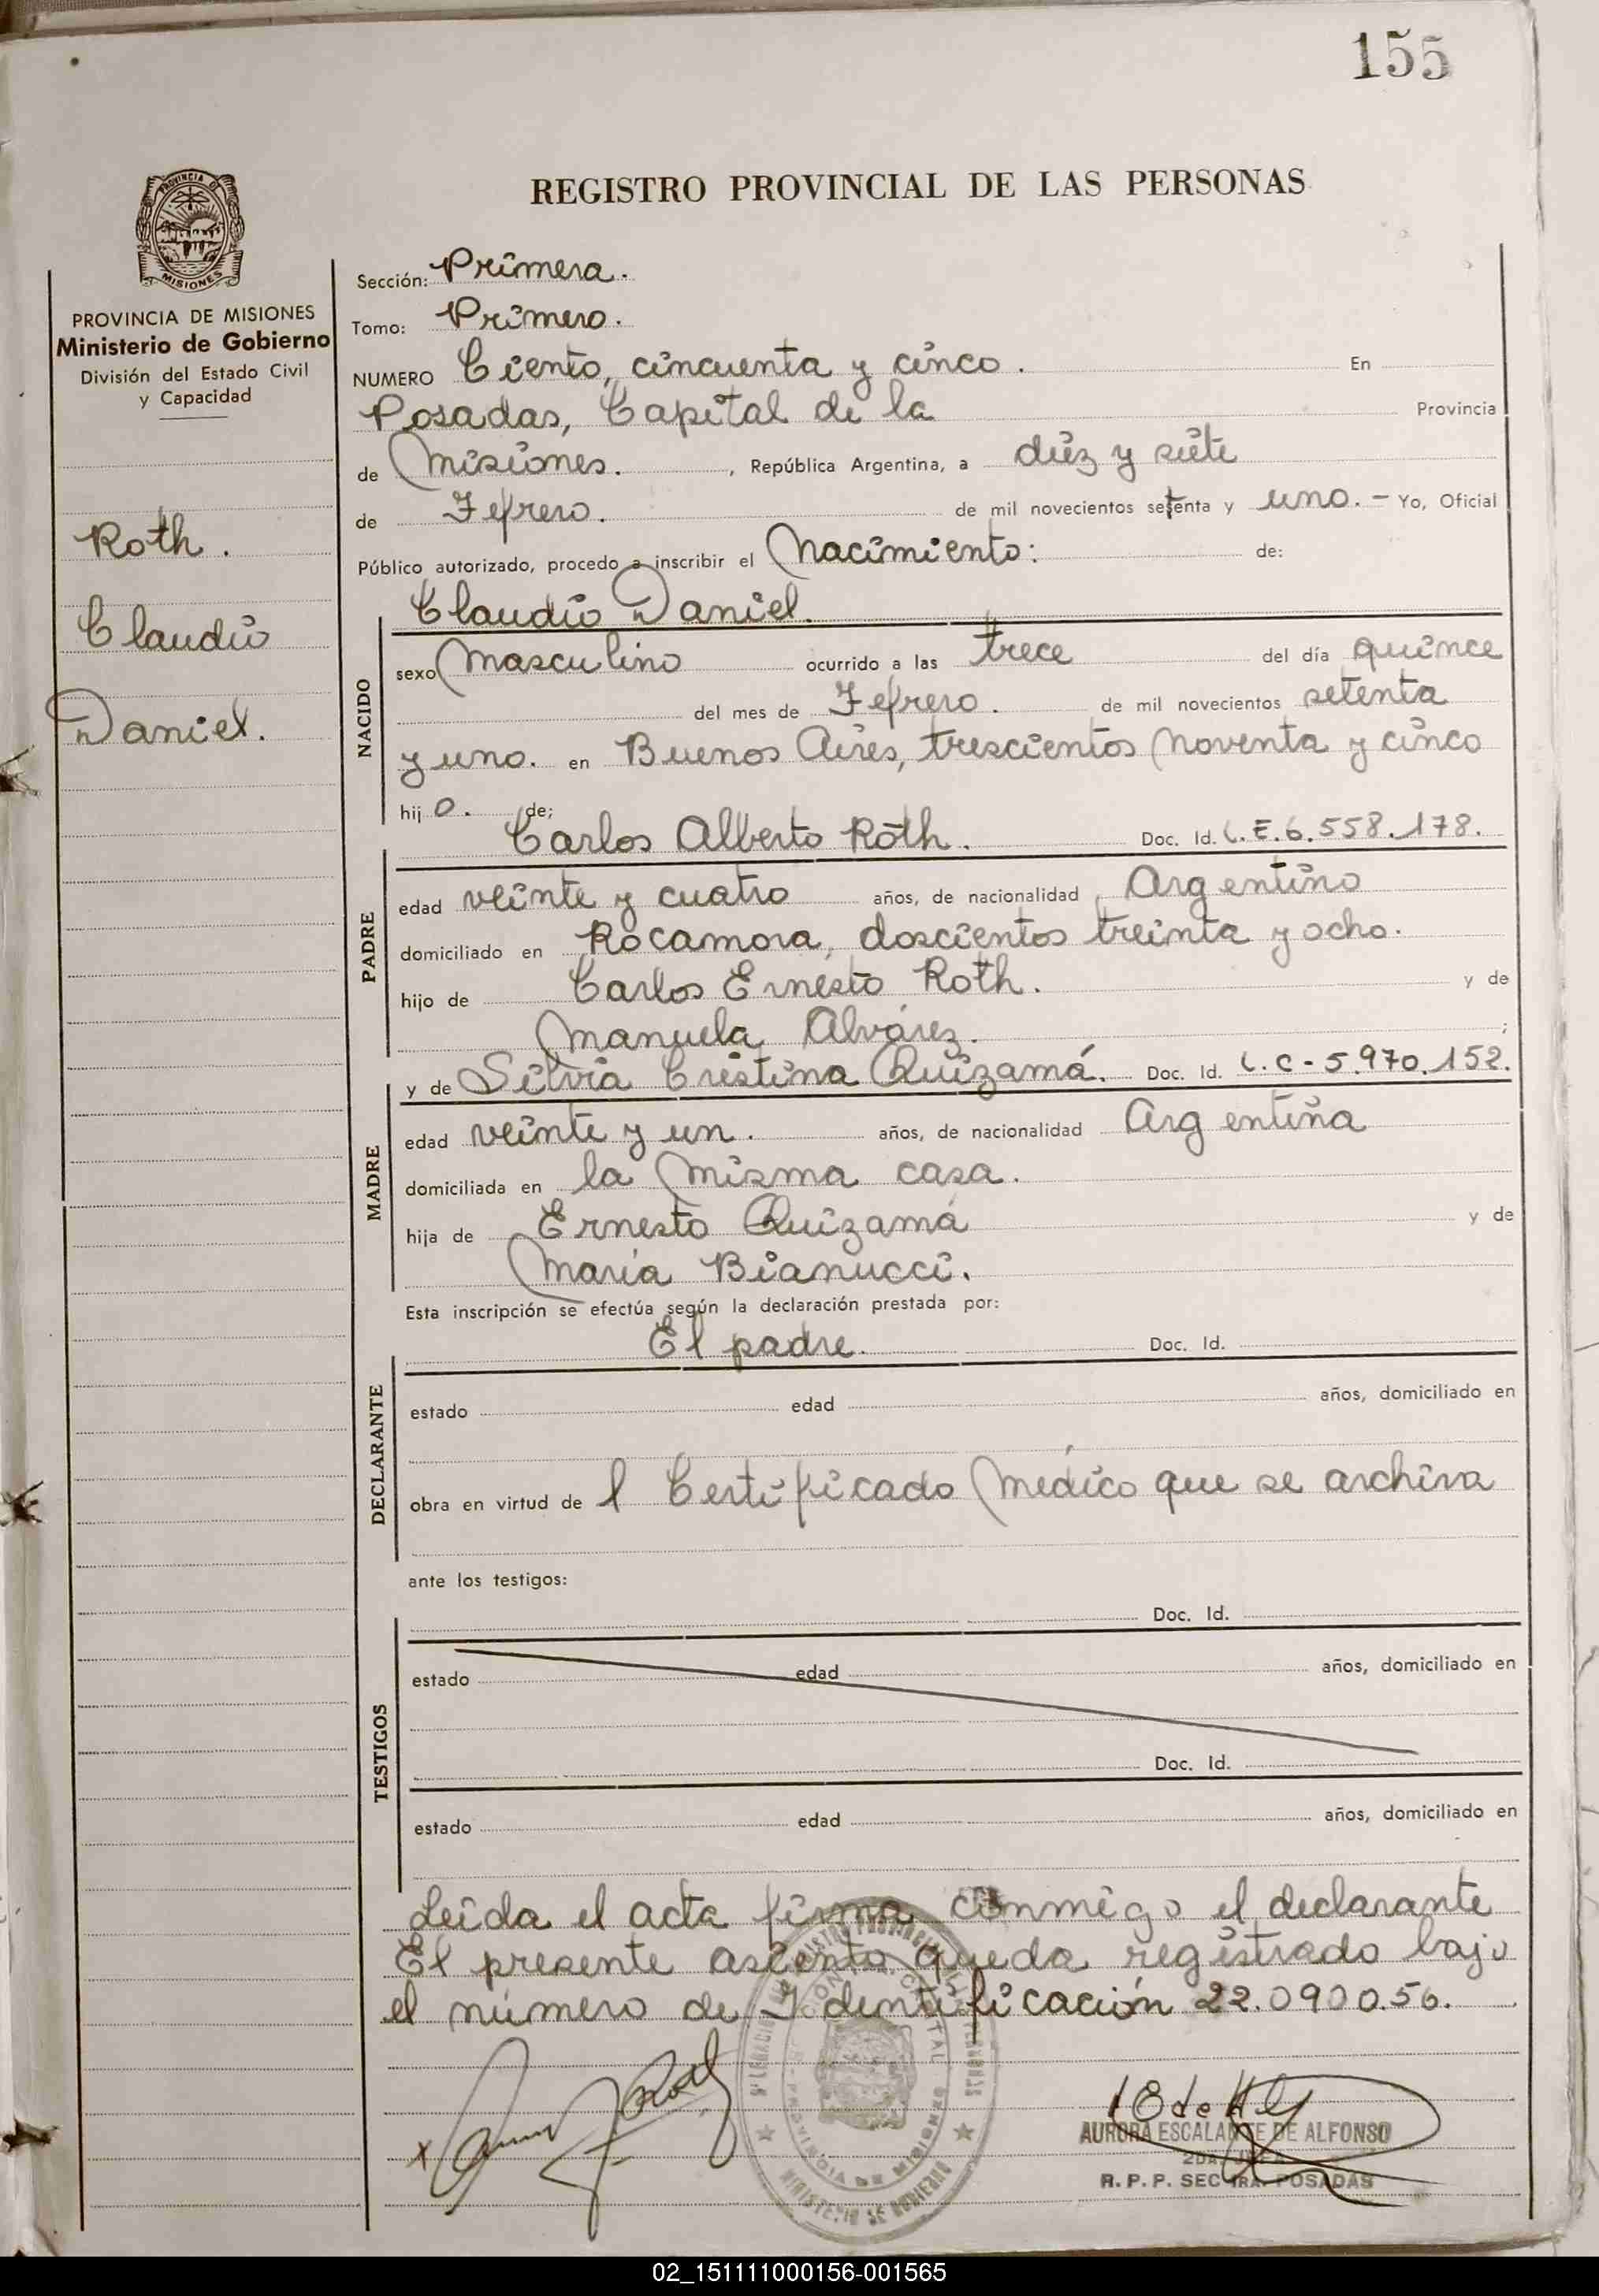 155
REGISTRO PROVINCIAL DE LAS PERSONAS
PROVINCIA DE
MISIONES
PROVINCIA DE MISIONES
Ministerio de Gobierno
División del Estado Civil
y Capacidad
Roth.
Claudio
Daniel.
Sección: Primera.
Tomo: Primero.
NUMERO Ciento, cincuenta y cinco. En
Posadas, Capital de la Provincia
de Misiones. , República Argentina, a diez y siete
de Febrero. de mil novecientos setenta y uno. - Yo, Oficial
Público autorizado, procedo a inscribir el Nacimiento: de:
Claudio Daniel.
NACIDO
sexo Masculino ocurrido a las trece del día quince
del mes de Febrero. de mil novecientos setenta
y uno. en Buenos Aires, trescientos noventa y cinco
hij o. de;
Carlos Alberto Roth. Doc. Id. L.E.6.558.178.
PADRE
edad veinte y cuatro años, de nacionalidad Argentino
domiciliado en Rocamora, doscientos treinta y ocho.
hijo de Carlos Ernesto Roth. y de
Manuela Alvárez. ;
y de Silvia Cristina Quizamá. Doc. Id. L.C-5.970.152.
MADRE
edad veinte y un. años, de nacionalidad Argentina
domiciliada en la misma casa.
hija de Ernesto Quizamá y de
María Bianucci.
Esta inscripción se efectúa según la declaración prestada por:
El padre. Doc. Id.
DECLARANTE
estado edad años, domiciliado en
obra en virtud de l Certificado Médico que se archiva
ante los testigos:
Doc. Id.
TESTIGOS
estado edad años, domiciliado en
Doc. Id.
estado edad años, domiciliado en
Leída el acta firma conmigo el declarante
El presente asiento queda registrado bajo
el número de Identificación 22.090.056.
Roth
AURORA ESCALANTE DE ALFONSO
2DA. JEFA
R.P.P. SEC 1RA. POSADAS
PROVINCIA DE MISIONES
MINISTERIO DE GOBIERNO
02_151111000156-001565